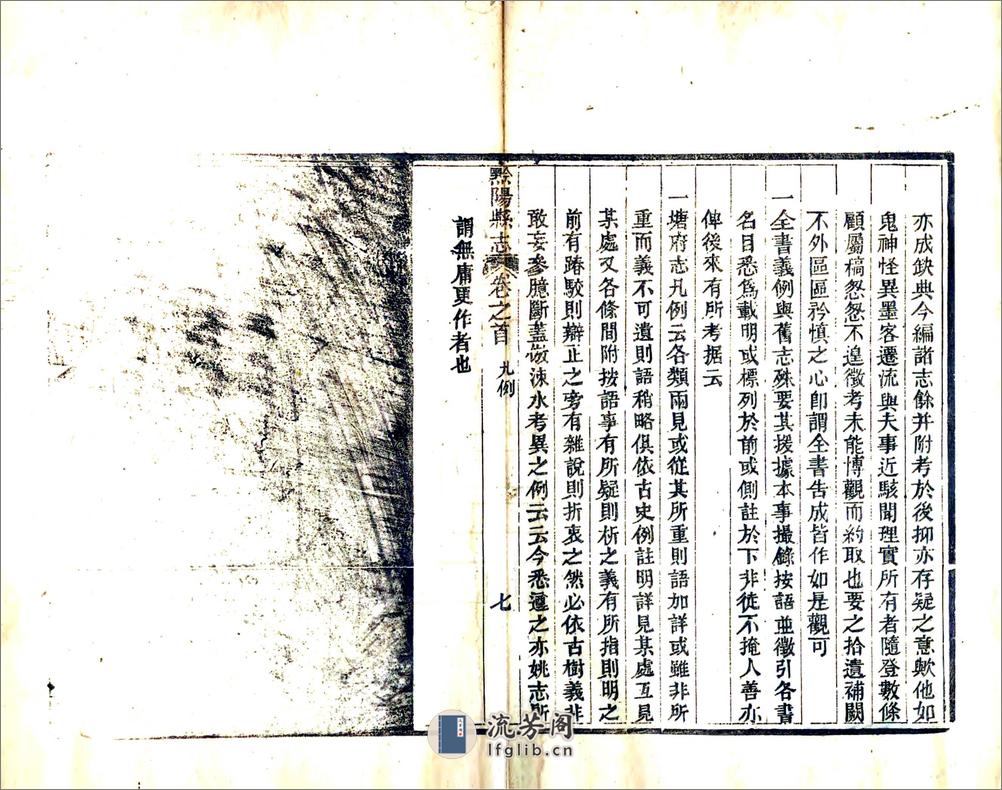 亦成缺典今編諸志餘并附考於後抑亦存疑之意歟他如
鬼神怪異墨客遷流與夫事近駭聞理實所有者隨登數條
顧屬稿怱怱不遑徵考未能博觀而約取也要之拾遺補闕
不外區區矜慎之心卽謂全書告成皆作如是觀可
一全書義例與舊志殊要其援據本事撮錄按語並徵引各書
名目悉爲載明或標列於前或側註於下非徒不掩人善亦
俾後來有所考据云
一塘府志凡例云各類兩見或從其所重則語加詳或雖非所
重而義不可遺則語稍略俱依古史例註明詳見某處互見
某處又各條間附按語事有所疑則析之義有所指則明之
前有踳駮則辯正之旁有雜說則折衷之然必依古樹義非
敢妄參臆斷蓋倣涑水考異之例云云今悉遵之亦姚志所
黔陽縣志 卷之首 凡例 七
謂無庸更作者也
流芳阁
lfglib.cn